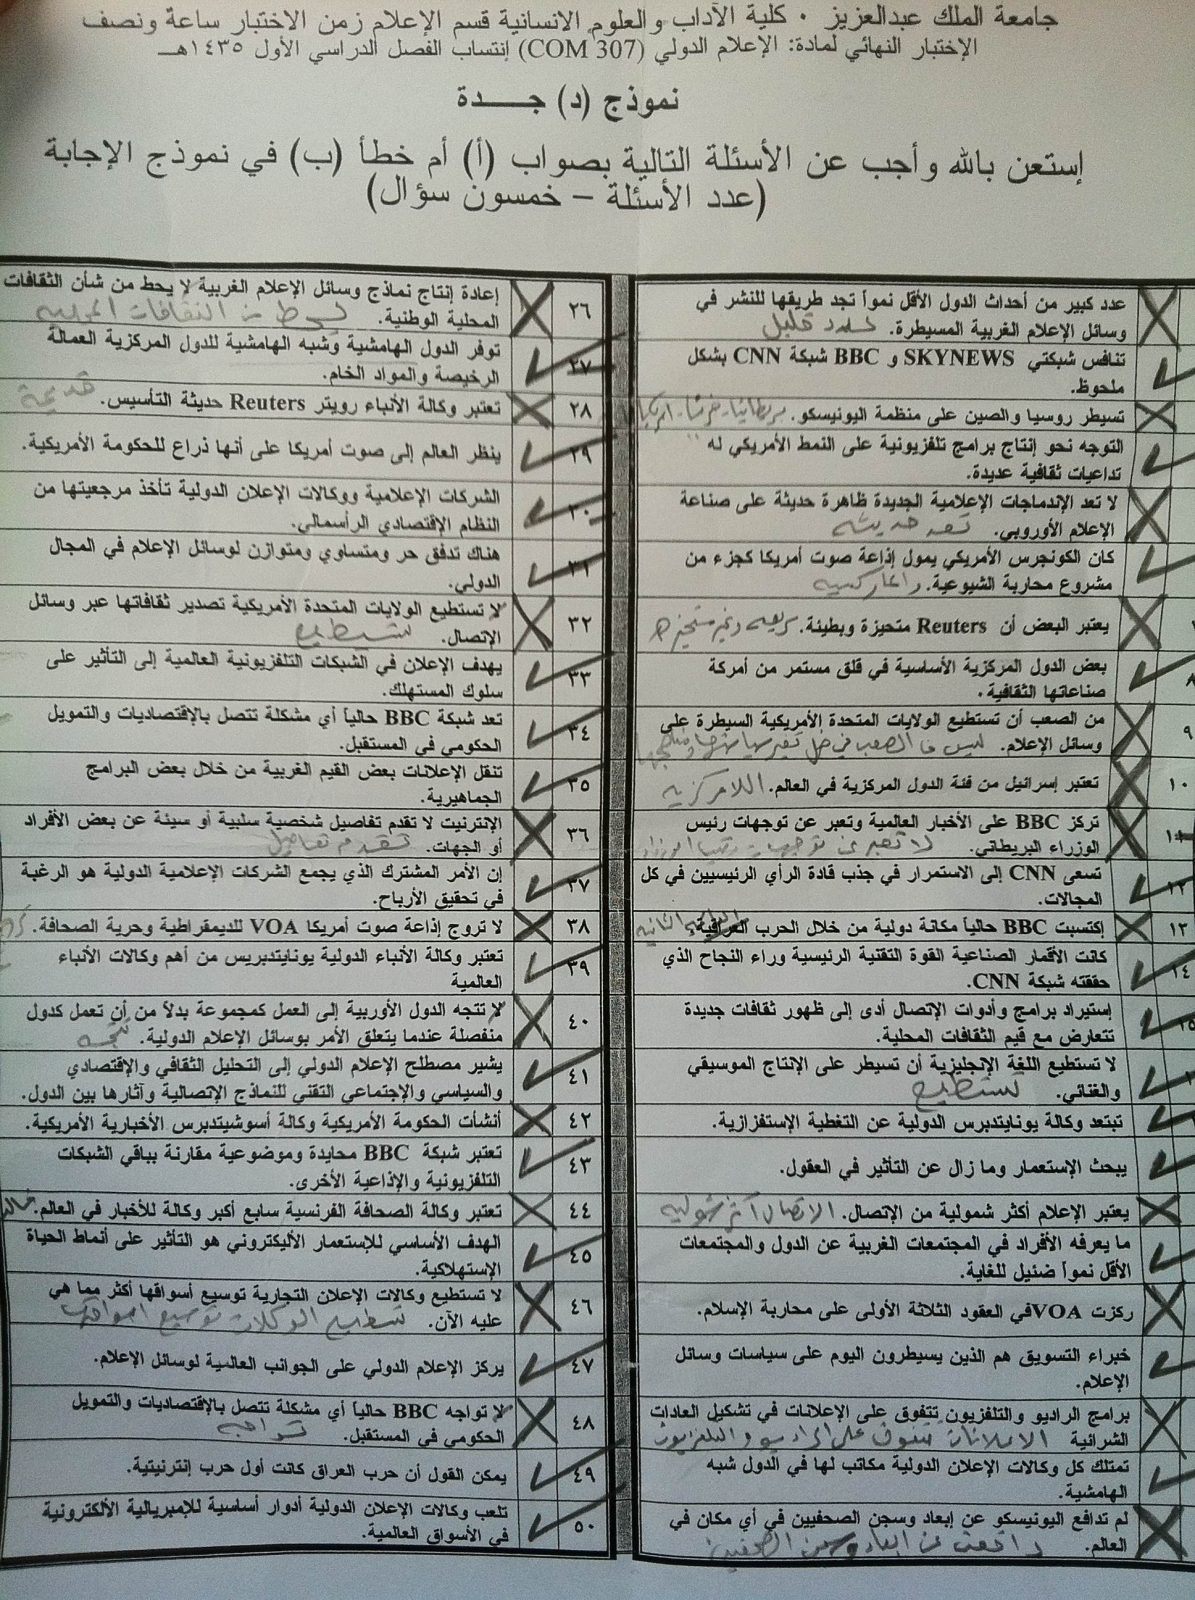 جامعة الملك عبدالعزيز • كلية الآداب والعلوم الإنسانية قسم الإعلام زمن الاختبار ساعة ونصف
الإختبار النهائي لمادة: الإعلام الدولي (COM 307) إنتساب الفصل الدراسي الأول ١٤٣٥هـ
نموذج (د) جــدة
إستعن بالله وأجب عن الأسئلة التالية بصواب (أ) أم خطأ (ب) في نموذج الإجابة
(عدد الأسئلة – خمسون سؤال)
عدد كبير من أحداث الدول الأقل نمواً تجد طريقها للنشر في
وسائل الإعلام الغربية المسيطرة. عدد قليل
تنافس شبكتي SKYNEWS و BBC شبكة CNN بشكل
ملحوظ.
تسيطر روسيا والصين على منظمة اليونيسكو. بريطانيا - فرنسا - امريكا
التوجه نحو إنتاج برامج تلفزيونية على النمط الأمريكي له
تداعيات ثقافية عديدة.
لا تعد الإندماجات الإعلامية الجديدة ظاهرة حديثة على صناعة
الإعلام الأوروبي. تعد حديثه
كان الكونجرس الأمريكي يمول إذاعة صوت أمريكا كجزء من
مشروع محاربة الشيوعية. والماركسيه
يعتبر البعض أن Reuters متحيزة وبطيئة. سريعه وغير متحيزه
٨ بعض الدول المركزية الأساسية في قلق مستمر من أمركة
صناعاتها الثقافية.
٩ من الصعب أن تستطيع الولايات المتحدة الأمريكية السيطرة على
وسائل الإعلام. ليس من الصعب في ظل
١٠ تعتبر إسرائيل من فئة الدول المركزية في العالم. اللامركزيه
١١ تركز BBC على الأخبار العالمية وتعبر عن توجهات رئيس
الوزراء البريطاني. لا تعبر عن توجهات رئيس الوزراء
١٢ تسعى CNN إلى الاستمرار في جذب قادة الرأي الرئيسيين في كل
المجالات.
١٣ إكتسبت BBC حالياً مكانة دولية من خلال الحرب العراقية. العالمية الثانيه
١٤ كانت الأقمار الصناعية القوة التقنية الرئيسية وراء النجاح الذي
حققته شبكة CNN.
١٥ إستيراد برامج وأدوات الإتصال أدى إلى ظهور ثقافات جديدة
تتعارض مع قيم الثقافات المحلية.
لا تستطيع اللغة الإنجليزية أن تسيطر على الإنتاج الموسيقي
والغنائي. تستطيع
تبتعد وكالة يونايتدبرس الدولية عن التغطية الإستفزازية.
يبحث الإستعمار وما زال عن التأثير في العقول.
يعتبر الإعلام أكثر شمولية من الإتصال. الاتصال أكثر شموليه
ما يعرفه الأفراد في المجتمعات الغربية عن الدول والمجتمعات
الأقل نمواً ضئيل للغاية.
ركزت VOAفي العقود الثلاثة الأولى على محاربة الإسلام.
خبراء التسويق هم الذين يسيطرون اليوم على سياسات وسائل
الإعلام.
برامج الراديو والتلفزيون تتفوق على الإعلانات في تشكيل العادات
الشرائية الاعلانات تتفوق على الراديو والتلفزيون
تمتلك كل وكالات الإعلان الدولية مكاتب لها في الدول شبه
الهامشية.
لم تدافع اليونيسكو عن إبعاد وسجن الصحفيين في أي مكان في
العالم. دافعت عن ابعاد وسجن الصحفيين
٢٦ إعادة إنتاج نماذج وسائل الإعلام الغربية لا يحط من شأن الثقافات
المحلية الوطنية. يحط من الثقافات المحليه
٢٧ توفر الدول الهامشية وشبه الهامشية للدول المركزية العمالة
الرخيصة والمواد الخام.
٢٨ تعتبر وكالة الأنباء رويتر Reuters حديثة التأسيس. قديمة
٢٩ ينظر العالم إلى صوت أمريكا على أنها ذراع للحكومة الأمريكية.
٣٠ الشركات الإعلامية ووكالات الإعلان الدولية تأخذ مرجعيتها من
النظام الإقتصادي الرأسمالي.
٣١ هناك تدفق حر ومتساوي ومتوازن لوسائل الإعلام في المجال
الدولي.
٣٢ لا تستطيع الولايات المتحدة الأمريكية تصدير ثقافاتها عبر وسائل
الإتصال. تستطيع
٣٣ يهدف الإعلان في الشبكات التلفزيونية العالمية إلى التأثير على
سلوك المستهلك.
٣٤ تعد شبكة BBC حالياً أي مشكلة تتصل بالإقتصاديات والتمويل
الحكومي في المستقبل.
٣٥ تنقل الإعلانات بعض القيم الغربية من خلال بعض البرامج
الجماهيرية.
٣٦ الإنترنيت لا تقدم تفاصيل شخصية سلبية أو سيئة عن بعض الأفراد
أو الجهات. تقدم تفاصيل
٣٧ إن الأمر المشترك الذي يجمع الشركات الإعلامية الدولية هو الرغبة
في تحقيق الأرباح.
٣٨ لا تروج إذاعة صوت أمريكا VOA للديمقراطية وحرية الصحافة.
٣٩ تعتبر وكالة الأنباء الدولية يونايتدبريس من أهم وكالات الأنباء
العالمية
٤٠ لا تتجه الدول الأوربية إلى العمل كمجموعة بدلاً من أن تعمل كدول
منفصلة عندما يتعلق الأمر بوسائل الإعلام الدولية. تتجه
٤١ يشير مصطلح الإعلام الدولي إلى التحليل الثقافي والإقتصادي
والسياسي والإجتماعي التقني للنماذج الإتصالية وآثارها بين الدول.
٤٢ أنشأت الحكومة الأمريكية وكالة أسوشيتدبرس الأخبارية الأمريكية.
٤٣ تعتبر شبكة BBC محايدة وموضوعية مقارنة بباقي الشبكات
التلفزيونية والإذاعية الأخرى.
٤٤ تعتبر وكالة الصحافة الفرنسية سابع أكبر وكالة للأخبار في العالم.
٤٥ الهدف الأساسي للإستعمار الأليكتروني هو التأثير على أنماط الحياة
الإستهلاكية.
٤٦ لا تستطيع وكالات الإعلان التجارية توسيع أسواقها أكثر مما هي
عليه الآن. تستطيع الوكالات توسيع اسواقها
٤٧ يركز الإعلام الدولي على الجوانب العالمية لوسائل الإعلام.
٤٨ لا تواجه BBC حالياً أي مشكلة تتصل بالإقتصاديات والتمويل
الحكومي في المستقبل. تواجه
٤٩ يمكن القول أن حرب العراق كانت أول حرب إنترنيتية.
٥٠ تلعب وكالات الإعلان الدولية أدوار أساسية للإمبريالية الألكترونية
في الأسواق العالمية.